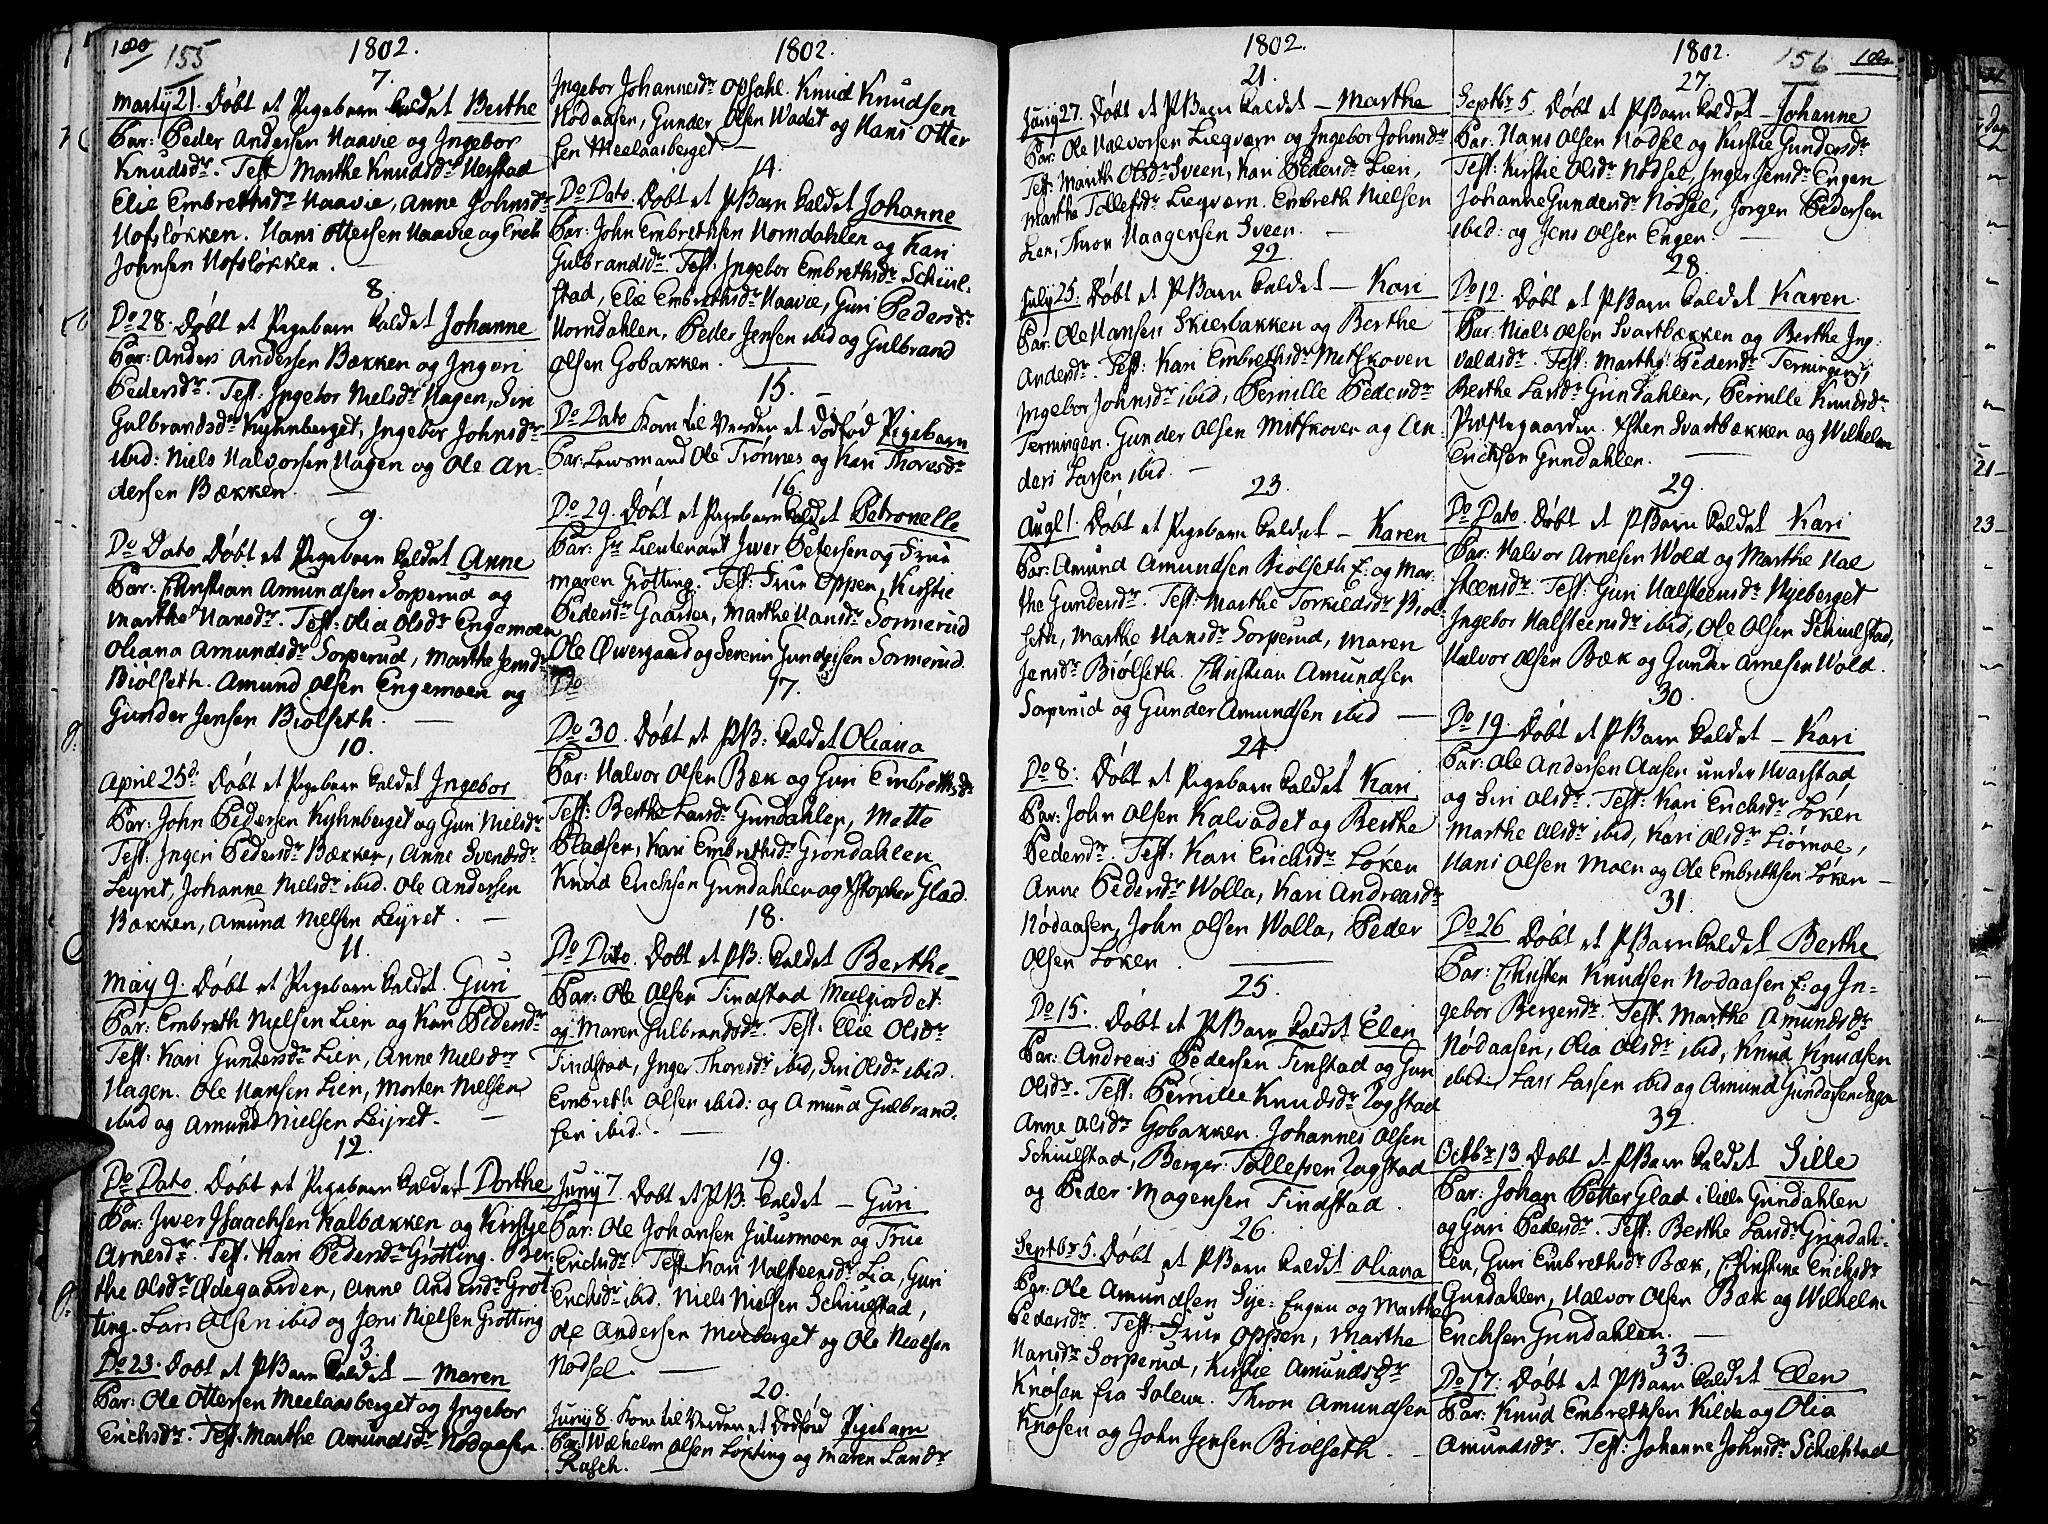 180 155
1802.
7.
Marty 21. Døbt et Pigebarn kaldet Berthe
Par: Peder Andersen Haavie og Ingebor
Knudsdr. Test Marthe Knudsdr Herstad
Elie Embrethsdr Haavie, Anne Johnsdr
Hofsløkken. Hans Ottersen Haavie og Erich
Johnsen Hofsløkken.
8.
Do 28. Døbt et Pigebarn kaldet Johanne
Par: Anders Andersen Bækken og Ingeri
Pedersdr. Test: Ingebor Nielsdr Hagen, Siri
Gulbrandsdr Kyhnberget, Ingebor Johnsdr
ibid: Niels Halvorsen Hagen og Ole An-
dersen Bækken.
9.
Do Dato Døbt et Pigebarn kaldet Anne
Par: Christian Amundsen Sorperud og
Marthe Hansdr. Test: Olia Olsdr Engemoen
Oliana Amundsdr Sorperud, Marthe Jensdr
Biølseth. Amund Olsen Engemoen og
Gunder Jensen Biølseth.
10.
April 25d. Døbt et Pigebarn kaldet Ingebor
Par: John Pedersen Kyhnberget og Guri Nielsdr
Test: Ingeri Pedersdr Bækken, Anne Svendsdr
Leyret, Johanne Nielsdr ibid. Ole Andersen
Bækken, Amund Nielsen Leyret.
11.
May 9. Døbt et Pigebarn kaldet. Guri
Par: Embreth Nielsen Lien og Kari Pedersdr
Test: Kari Gundersdr Lien, Anne Nielsdr
Hagen. Ole Hansen Lien, Morten Nielsen
ibid og Amund Nielsen Leyret.
12.
Do Dato. Døbt et Pigebarn kaldet Dorthe
Par: Iwer Isaachsen Kalbækken og Kirstie
Arnesdr. Test. Kari Pedersdr Grøtting. Ber-
the Olsdr Ødegaarden, Anne Andersdr Grøt
ting. Lars Olsen ibid og Jens Nielsen Grøtting
13.
Do 23. Døbt et PBarn kaldet — Maren
Par: Ole Ottersen Meelaasberget og Ingebor
Erichsdr. Test: Marthe Amundsdr Nødaasen.
1802.
Ingebor Johannesdr Opsahl. Knud Knudsen
Nødaasen, Gunder Olsen Wadet og Hans Otter
sen Meelaasberget.
14.
Do Dato. Døbt et PBarn kaldet Johanne
Par: John Embrethsen Horndahlen og Kari
Gulbrandsdr. Test: Ingebor Embrethsdr Schiul-
stad, Elie Embrethsdr Haavie, Guri Pedersdr.
Horndahlen, Peder Jensen ibid og Gulbrand
Olsen Gobakken.
15.
Do Dato Kom til Verden et Dødfød Pigebarn
Par: Lensmand Ole Trønnes og Kari Thoresdr
16.
Do 29. Døbt et Pigebarn kaldet Petronelle
Par: Hr Lieutenant Iwer Petersen og Frue
Maren Grøtting. Test: Frue Oppen, Kirstie
Pedersdr Gaarder, Marthe Hansdr Sormerud
Ole Øwergaard og Severin Gundersen Sormerud.
Do 17.
Do 30. Døbt et PB: kaldet Oliana
Par: Halvor Olsen Bæk og Guri Embrethsdr
Test: Berthe Larsdr Gundahlen, Mette
Pladsen, Kari Embrethsdr Grøndahlen
Knud Erichsen Gundahlen og Xstopher Glad.
18.
Do Dato. Døbt et PB: kaldet Berthe
Par: Ole Olsen Tindstad Meelgiordet
og Maren Gulbrandsdr. Test: Elie Olsdr
Tindstad, Inger Thoresdr ibid, Siri Olsdr ibid.
Embreth Olsen ibid: og Amund Gulbrand.
sen ibid.
19.
Juny 7. Døbt et PB: kaldet — Guri
Par: Ole Johansen Julusmoen og True
Erichsdr. Test: Kari Halsteensdr Lia, Guri
Erichsdr ibid. Niels Nielsen Schiulstad,
Ole Andersen Moeberget og Ole Nielsen
Nodsel.
20.
Juny 8. Kom til Verden et Dødfød Pigebarn
Par: Wilhelm Olsen Løkting og Maren Larsdr
Rasch.
1802.
21.
Juny 27. Døbt et PBarn kaldet — Marthe
Par: Ole Halvorsen Lieqværn og Ingebor Johnsdr
Test: Marth Olsdr Sveen, Kari Pedersdr Lien,
Marthe Tollefsdr Lieqværn. Embreth Nielsen
Lien, Thron Haagensen Sveen.
22.
July 25. Døbt et PBarn kaldet — Kari
Par: Ole Hansen Skierbakken og Berthe
Andersdr. Test: Kari Embrethsdr Mitskoven
Ingebor Johnsdr ibid, Pernille Pedersdr
Terningen. Gunder Olsen Mitskoven og An-
ders Larsen ibid.
23.
Augl 1. Døbt et Pigebarn kaldet — Karen
Par: Amund Amundsen Biølseth E: og Mar-
the Gundersdr. Test: Marthe Torkildsdr Biøl-
seth, Marthe Hansdr Sorperud, Maren
Jensdr Biølseth. Christian Amundsen
Sorperud og Gunder Amundsen ibid —
24.
Do 8. Døbt et Pigebarn kaldet Kari
Par: John Olsen Kalvadet og Berthe
Pedersdr. Test: Kari Erichsdr Løken
Anne Pedersdr Wolla, Kari Andreasdr
Nødaasen, John Olsen Wolla, Peder
Olsen Løken.
25.
Do 15. Døbt et PBarn kaldet Elen
Par: Andreas Pedersen Tinstad og Guri
Olsdr. Test: Pernille Knudsdr Zagstad
Anne Olsdr Gobakken. Johannes Olsen
Schiulstad, Berger Tollefsen Zagstad
og Peder Mogensen Tindstad.
26.
Septbr 5. Døbt et PBarn kaldet Oliana
Par: Ole Amundsen Sye: Engen og Marthe
Pedersdr. Test: Frue Oppen, Marthe
Hansdr Sorperud, Kirstie Amundsdr
Knøsen fra Soleur. Thron Amundsen
Knøsen og John Jensen Biølseth.
1802. 156
27.
Septbr 5. Døbt et PBarn kaldet Johanne
Par: Hans Olsen Nodsel og Kirstie Gundersdr
Test: Kirstie Olsdr Nodsel, Inger Jensdr Engen
Johanne Gundersdr Nodsel, Jørgen Pedersen
ibid: og Jens Olsen Engen.
28.
Do 12. Døbt et PBarn kaldet Karen.
Par: Niels Olsen Svartbækken og Berthe Ing-
valdsdr. Test: Marthe Pedersdr Terningen,
Berthe Larsdr Grindahlen, Pernille Knudsdr
Præstegaarden. Østen Svartbækken og Wilhelm
Erichsen Gundahlen.
29.
Do Dato. Døbt et PBarn kaldet Kari
Par: Halvor Arnesen Wold og Marthe Hal
steensdr. Test: Guri Halsteensdr Nyeberget
Ingebor Halsteensdr ibid, Ole Olsen Schiulstad,
Halvor Olsen Bæk og Gunder Arnesen Wold.
30.
Do 19. Døbt et PBarn kaldet — Kari
Par: Ole Andersen Aasen under Harstad
og Siri Olsdr. Test: Kari Erichsdr Løken
Marthe Olsdr ibid, Kari Olsdr Liørmoe,
Hans Olsen Moen og Ole Embrethsen Løken —
31.
Do 26 Døbt et PBarn kaldet Berthe
Par: Christen Knudsen Nødaasen E: og In-
gebor Bergersdr. Test. Marthe Amundsdr
Nødaasen, Olia Olsdr ibid, Knud Knudsen
ibid: Lars Larsen ibid og Amund Gundersen
32.
Octbr 13. Døbt et PBarn kaldet Sille
Par: Johan Petter Glad i lille Gundahlen
og Guri Pedersdr. Test: Berthe Larsdr Grindah-
len, Guri Embrethsdr Bæk, Christine Erichsdr
Gundahlen, Halvor Olsen Bæk og Wilhelm
Erichsen Gundahlen.
33.
Do 17. Døbt et PBarn kaldet Elen
Par: Knud Embrethsen Kilde og Olia
Amundsdr. Test: Johanne Johnsdr Schiulstad